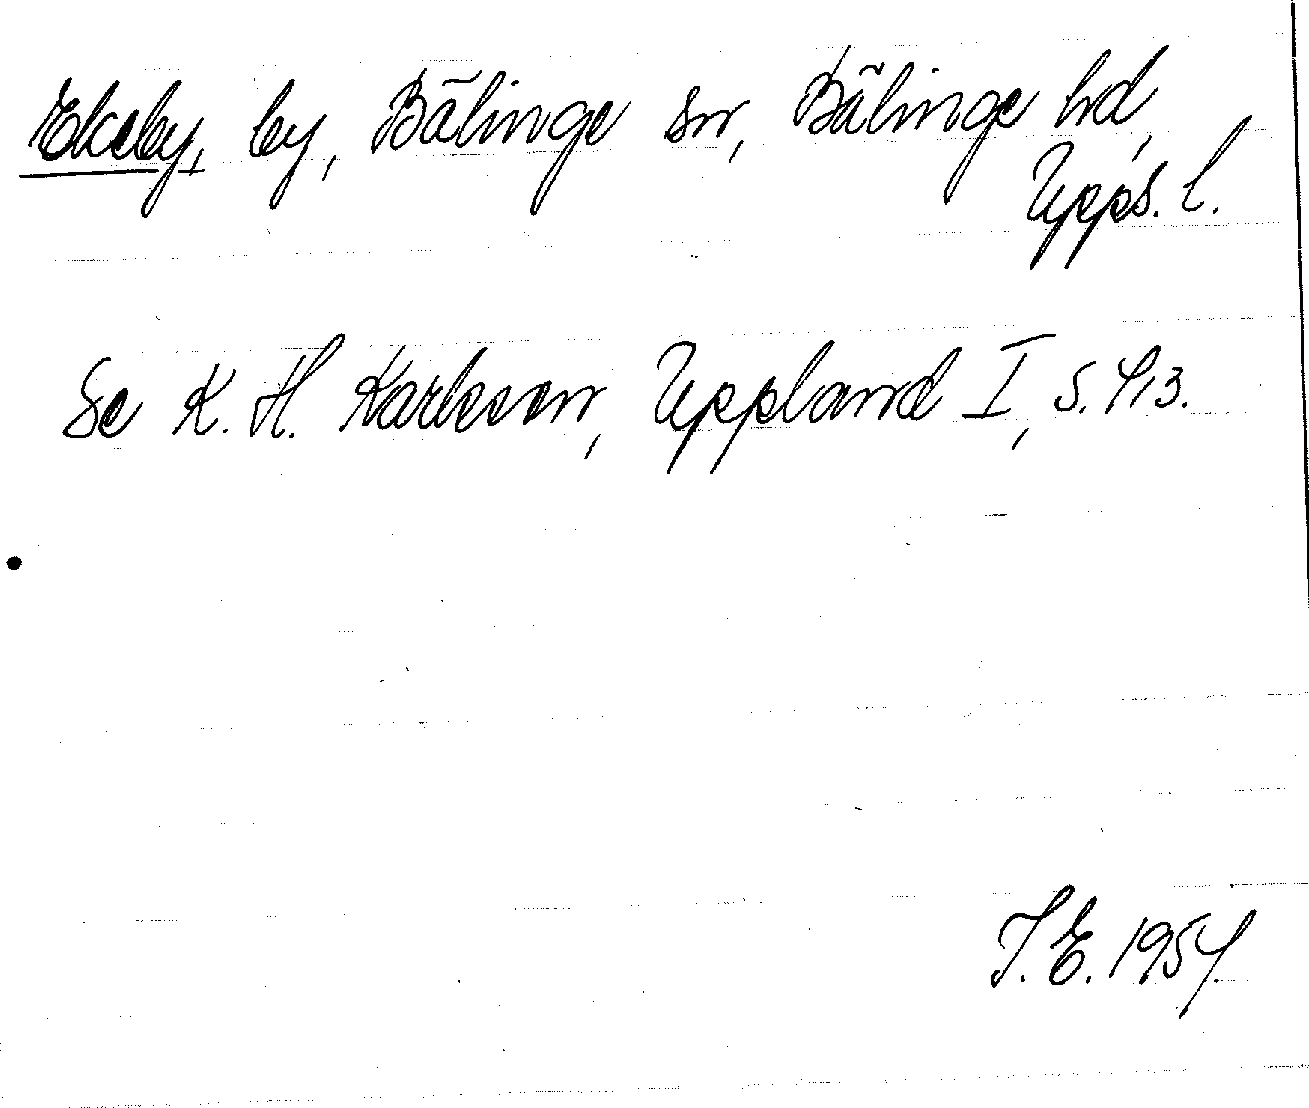 Ekeby, by, Bälinge sn, Bälinge hd,
Upps. l.
Se K. H. Karlsson, Uppland I, s. 413.
J. E. 1954